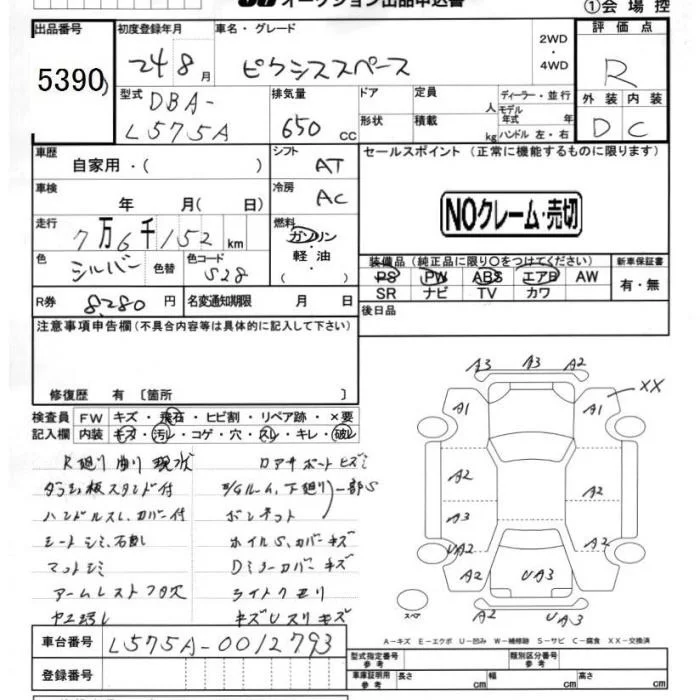 オークション出品申込書
①会場控
出品番号 初度登録年月 車名・グレード 2WD ・ 4WD 評価点
5390 24 8月 ピクシススペース R
型式 DBA-L575A 排気量 650 cc ドア 定員 人 ディーラー・並行
形状 積載 kg モデル年式 年 ハンドル 左・右
外装 内装
D C
車歴 自家用・( ) シフト AT セールスポイント (正常に機能するものに限ります)
車検 年 月( 日) 冷房 AC
NOクレーム・売切
走行 7万6千152km 燃料 ガソリン・軽油・( )
色 シルバー 色替 色コード S28
装備品(純正品に限り○をつけてください) 新車保証書
PS PW ABS エアB AW 有・無
SR ナビ TV カワ
R券 8,280円 名変通知期限 月 日 後日品
注意事項申告欄(不具合内容等は具体的に記入して下さい)
修復歴 有〔箇所 〕
検査員 FW キズ・飛石・ヒビ割・リペア跡・×要
記入欄 内装 キズ・汚レ・コゲ・穴・スレ・キレ・破レ
R廻り曲り 現状
ハンドルスレ カバー付
シートシミ、
マットシミ
アームレストフタ欠
ボンネット
ホイルS、カバーキズ
Dミラーカバーキズ
ライトクモリ
A3 A3 A2
XX
A1 A1
A2 A2
A3
UA2 A2
A2 UA3 A2
A2 UA3
スペア
A-キズ E-エクボ U-凹み W-補修跡 S-サビ C-腐食 XX-交換済
車台番号 L575A-0012793
型式指定番号 参考 類別区分番号 参考
登録番号 車庫証明用 参考 長さ cm 幅 cm 高さ cm